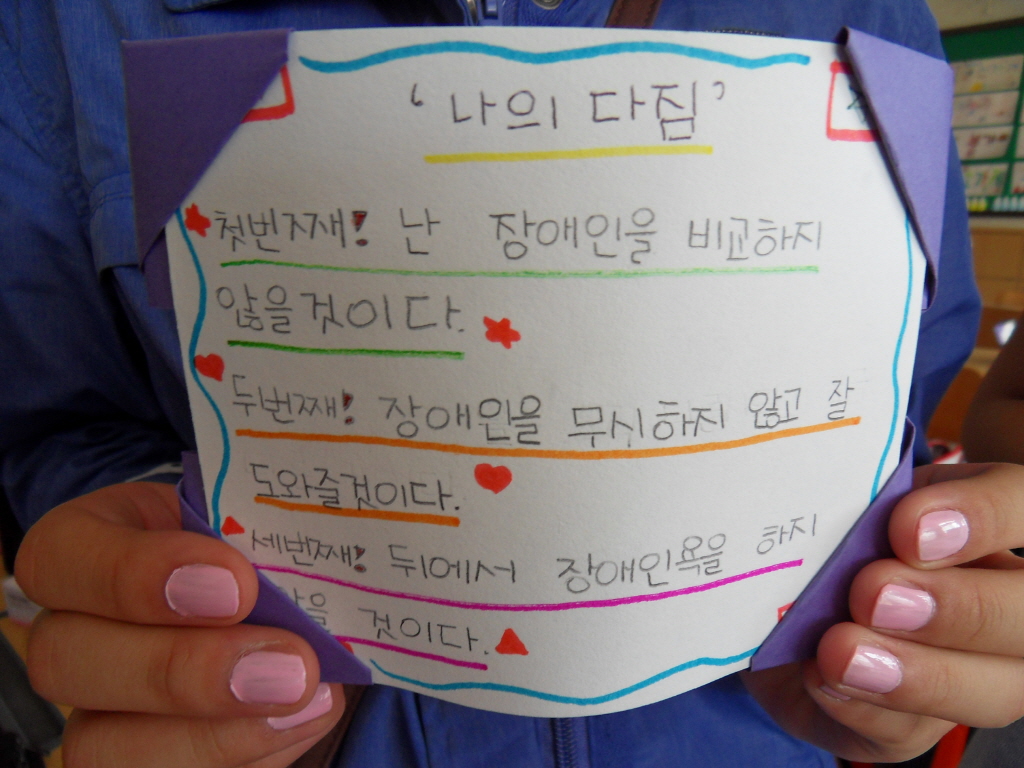 ‘나의 다짐’
첫번째! 난 장애인을 비교하지
않을것이다.
두번째! 장애인을 무시하지 않고 잘
도와줄것이다.
세번째! 뒤에서 장애인욕을 하지
것이다.